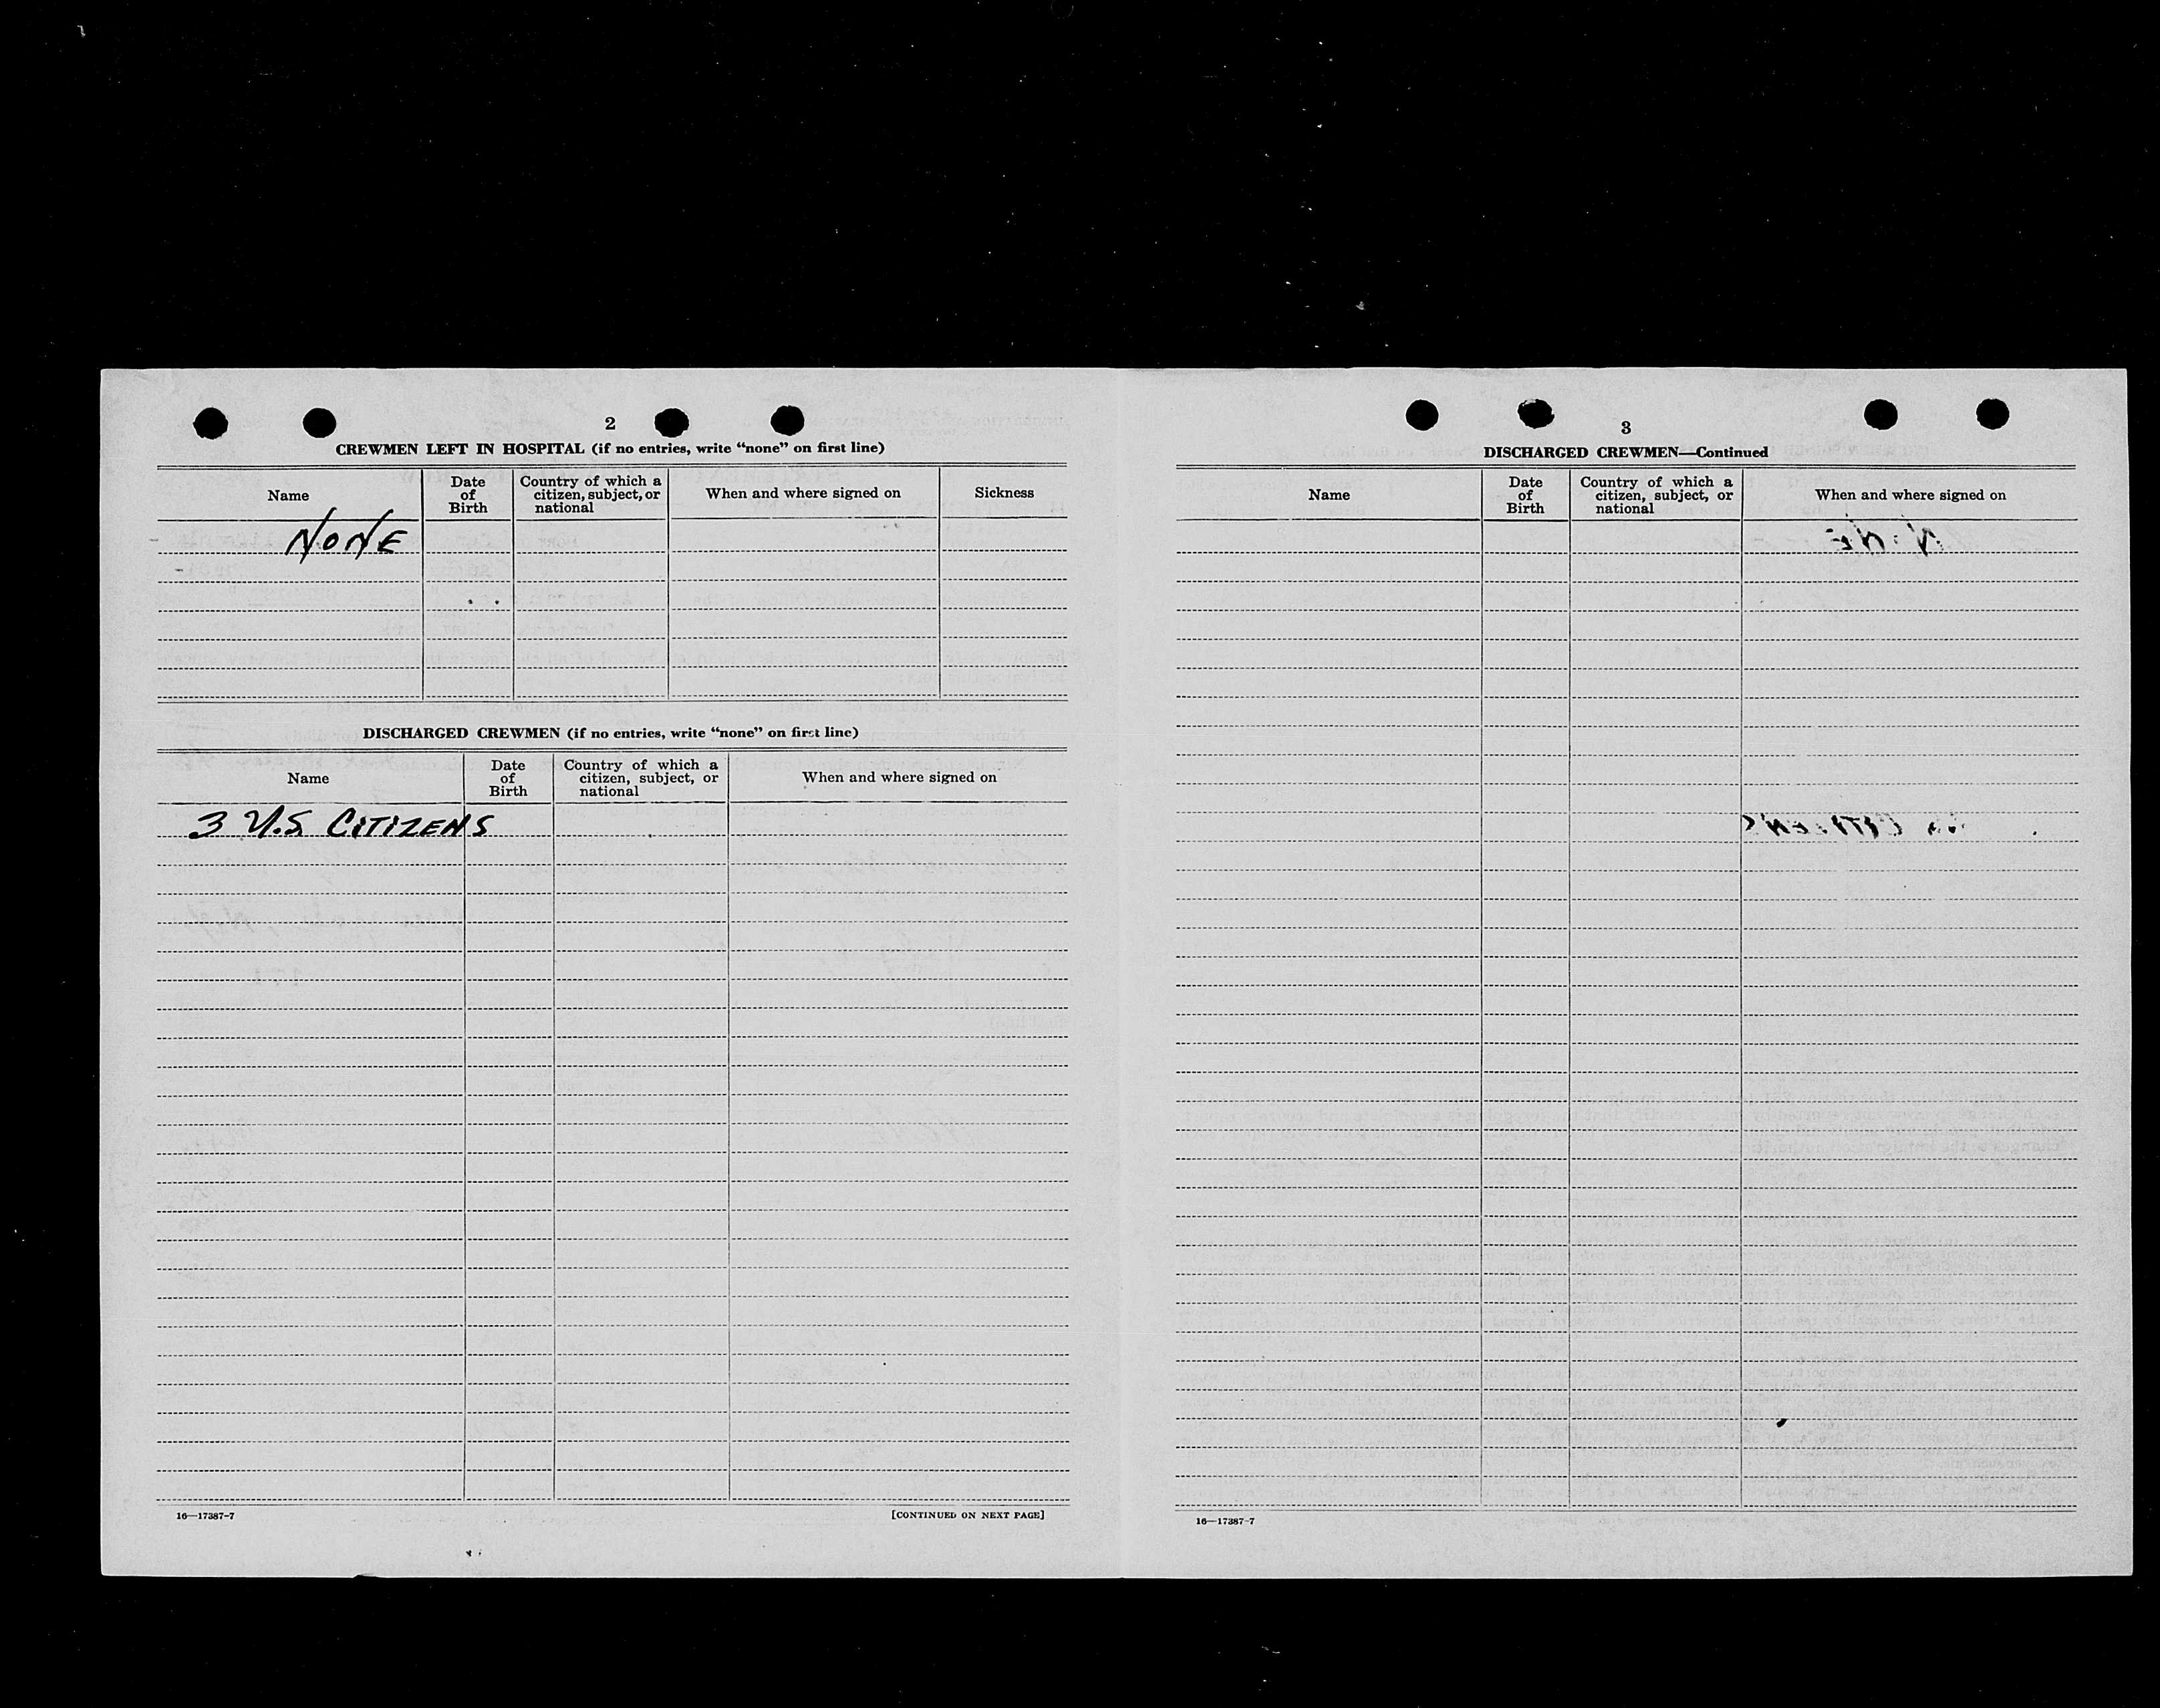 2
CREWMEN LEFT IN HOSPITAL (if no entries, write “none” on first line)
Name
Date of Birth
Country of which a citizen, subject, or national
When and where signed on
Sickness
NONE
DISCHARGED CREWMEN (if no entries, write “none” on first line)
Name
Date of Birth
Country of which a citizen, subject, or national
When and where signed on
3 U.S. CITIZENS
16—17387-7
[CONTINUED ON NEXT PAGE]
3
DISCHARGED CREWMEN—Continued
Name
Date of Birth
Country of which a citizen, subject, or national
When and where signed on
16—17387-7